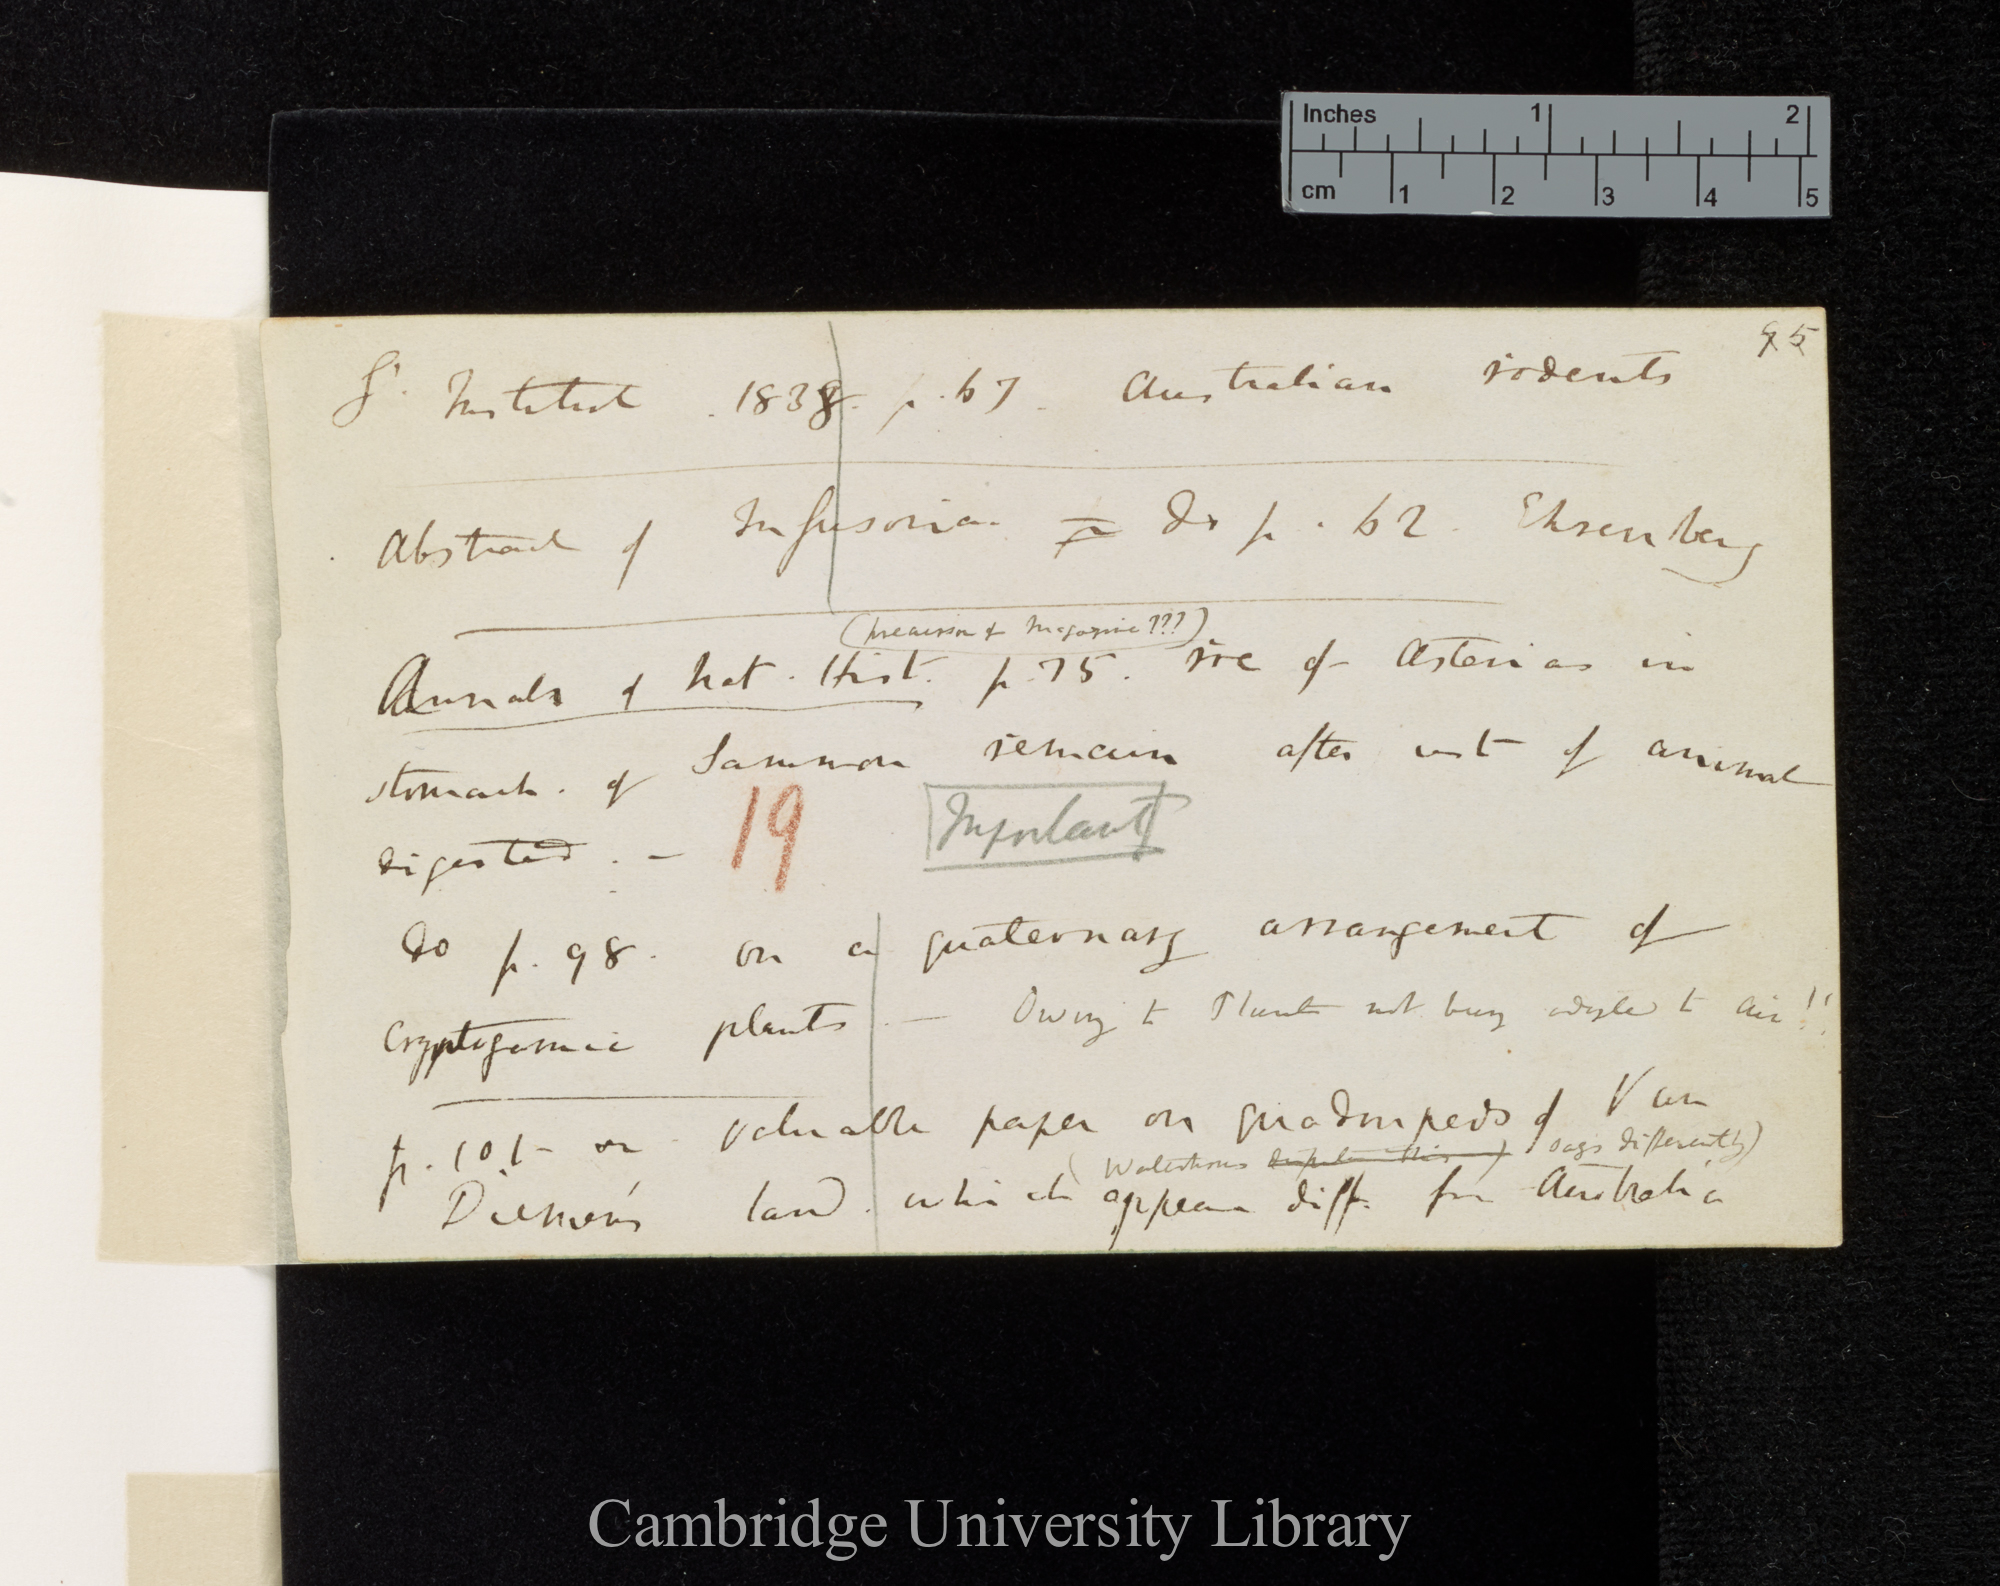 Inches 1 2
cm 1 2 3 4 5
95
L'Institut . 1838. p. 67. Australian rodents
Abstract of Infusoria do p. 62. Ehrenberg
( Magazine ???)
Annals of Nat. Hist. p. 75. roe of Asterias in
stomach. of Sammon remain after rest of animal
digested. —
19 Important
do p. 98. on a quaternary arrangement of
Cryptogamic plants — Owing to Plants not being to air!!
p. 101 — on valuable paper on quadrupeds of Van
(Waterhouse says differently)
Diemen's land. which appear diff. from Australia
Cambridge University Library